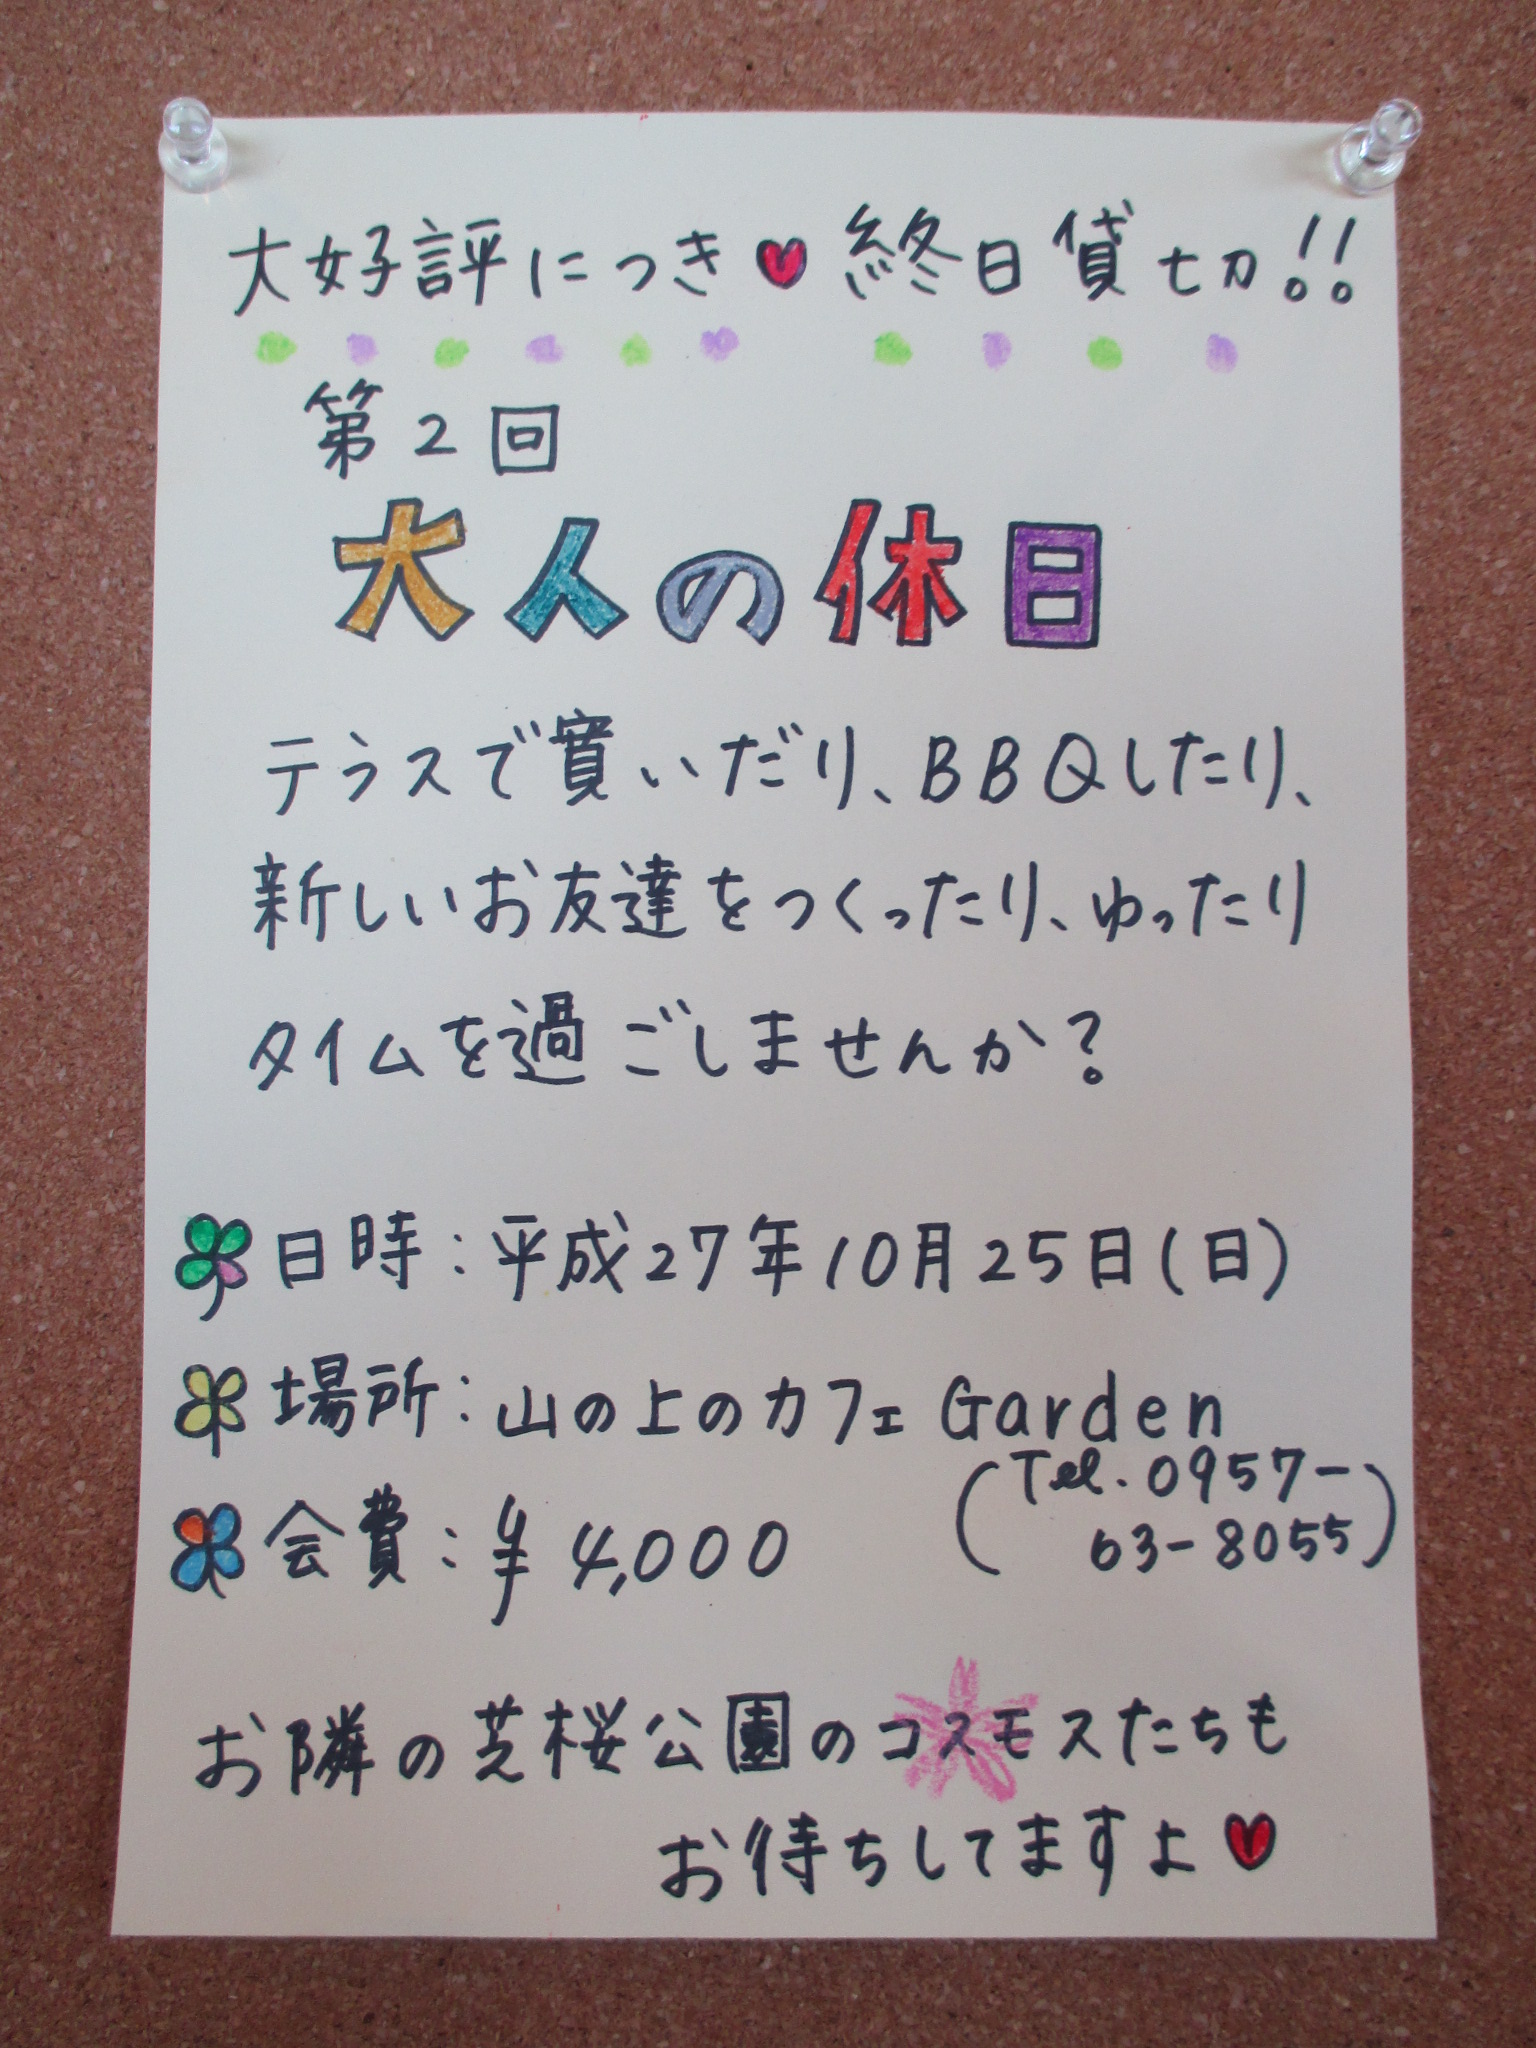 大好評につき♥終日貸切!!
第2回
大人の休日
テラスで寛いだり、BBQしたり、
新しいお友達をつくったり、ゆったり
タイムを過ごしませんか?
日時:平成27年10月25日(日)
場所:山の上のカフェGarden
(Tel.0957-
63-8055)
会費:¥4,000
お隣の芝桜公園のコスモスたちも
お待ちしてますよ♥